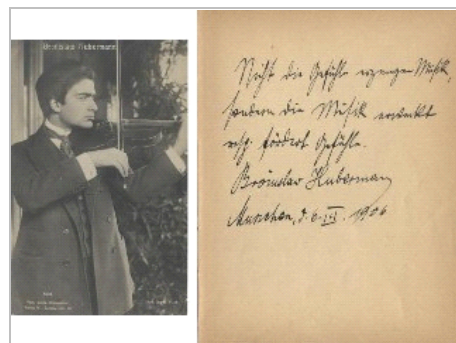 Bronislaw Hubermann
Nicht die Gefühle erzeugen Musik,
sondern die Musik erweckt
resp. fördert Gefühle.
Bronislaw Huberman
München, d. 6. III. 1906